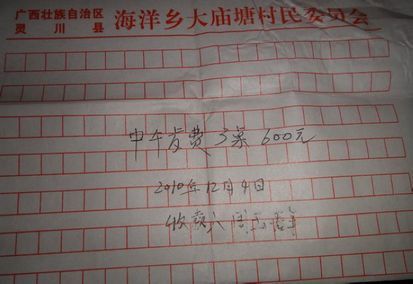 广西壮族自治区
灵川县 海洋乡大庙塘村民委员会
中午餐费 3桌 600元
2010年12月4日
收款人 周